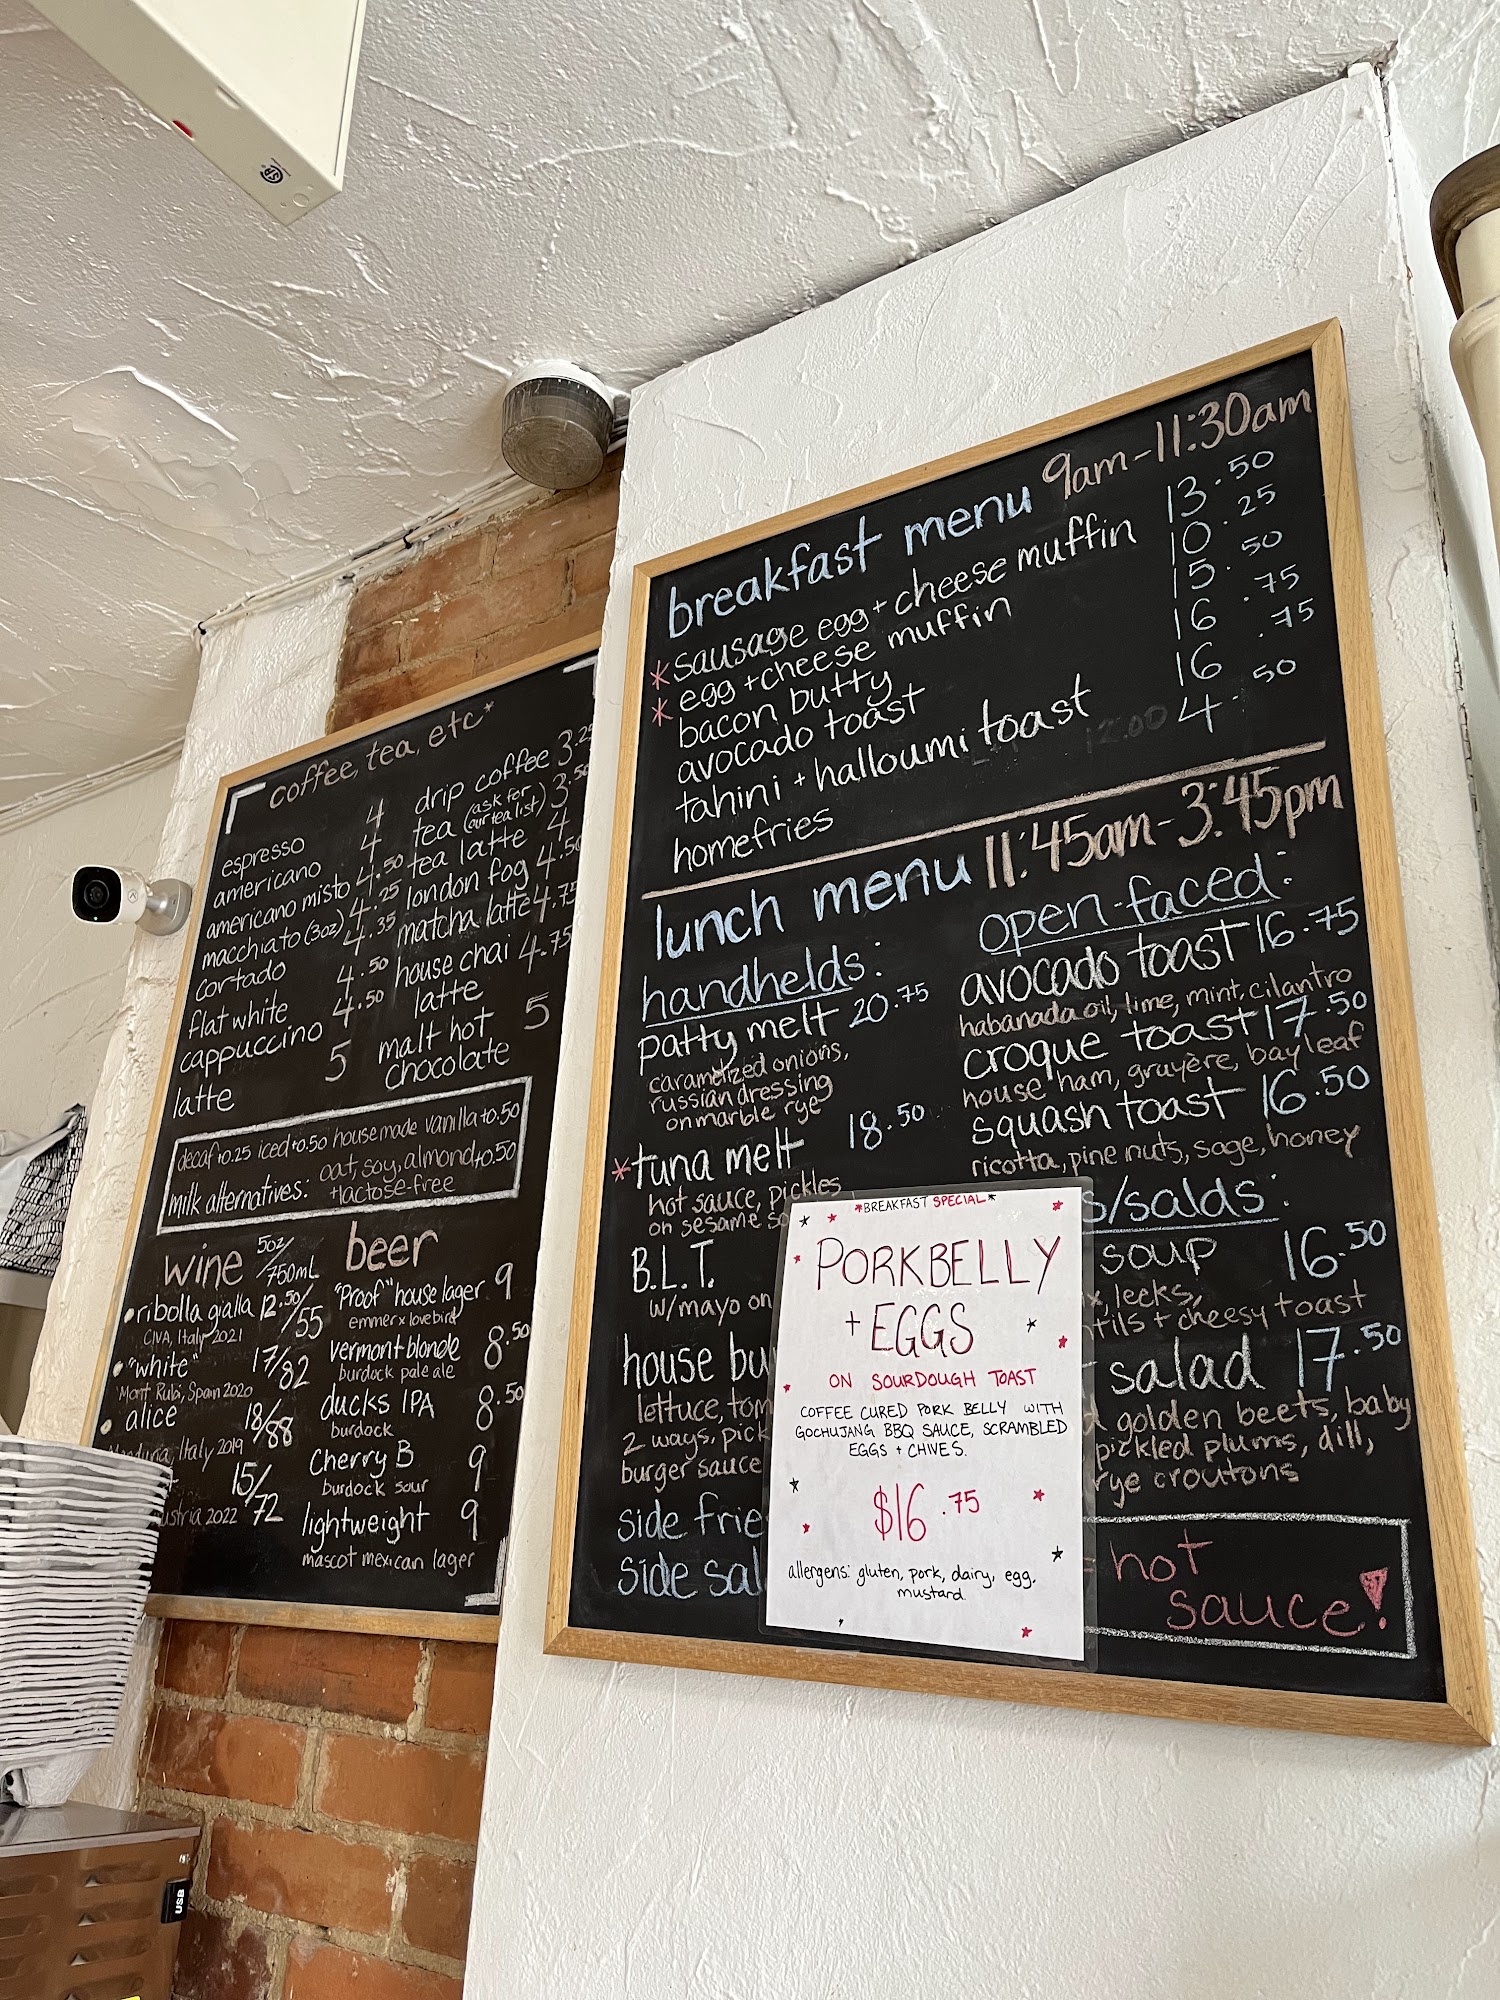 coffee, tea, etc*
espresso 4
americano 4
americano misto 4.50
macchiato (3oz) 4.25
cortado 4.35
flat white 4.50
cappuccino 4.50
latte 5
drip coffee 3.25
tea (ask for our tea list) 3.50
tea latte 4
london fog 4.50
matcha latte 4.75
house chai 4.75
latte
malt hot 5
chocolate
decaf +0.25 iced +0.50 housemade vanilla +0.50
milk alternatives: oat, soy, almond +0.50
+lactose-free
wine 5oz/750mL
ribolla gialla 12.50/55
CIVA, Italy 2021
"white" 17/82
Mont Rubi, Spain 2020
alice 18/88
Italy 2019
15/72
2022
beer
"Proof" house lager 9
emmer x lovebird
vermont blonde 8.50
burdock pale ale
ducks IPA 8.50
burdock
Cherry B 9
burdock sour
lightweight 9
mascot mexican lager
breakfast menu 9am-11:30am
*sausage egg + cheese muffin 13.50
*egg + cheese muffin 10.25
bacon butty 15.50
avocado toast 16.75
tahini + halloumi toast 16.75
homefries 4.50
lunch menu 11:45am-3:45pm
handhelds:
patty melt 20.75
caramelized onions,
russian dressing
on marble rye
*tuna melt 18.50
hot sauce, pickles
on sesame
B.L.T.
w/mayo on
house
lettuce,
2 ways,
burger sauce
side
side
open-faced:
avocado toast 16.75
habanada oil, lime, mint, cilantro
croque toast 17.50
house ham, gruyère, bay leaf
squash toast 16.50
ricotta, pine nuts, sage, honey
s/salds:
soup 16.50
leeks,
+ cheesy toast
salad 17.50
golden beets, baby
pickled plums, dill,
rye croutons
= hot
sauce!
*BREAKFAST SPECIAL*
PORKBELLY
+ EGGS
ON SOURDOUGH TOAST
COFFEE CURED PORK BELLY WITH
GOCHUJANG BBQ SAUCE, SCRAMBLED
EGGS + CHIVES.
$16.75
allergens: gluten, pork, dairy, egg,
mustard.
USB